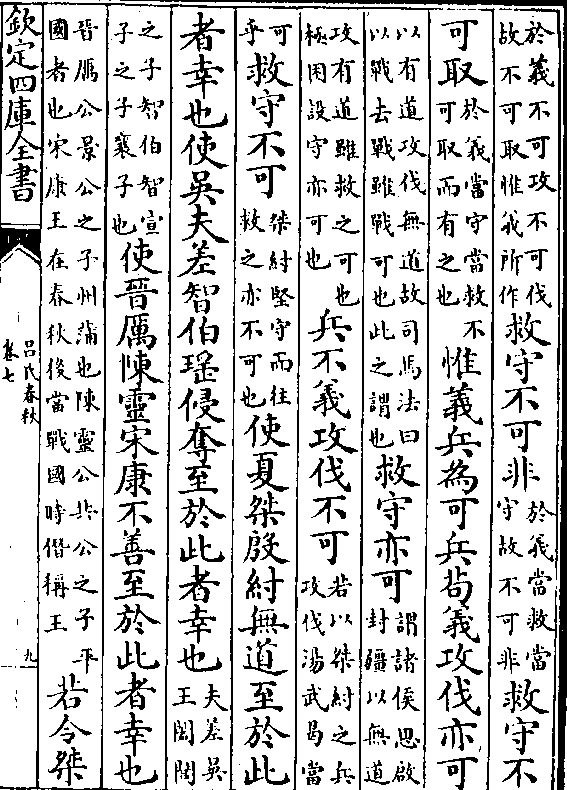 於義不可攻不可伐故不可取惟義所作救守不可非於義當救當守故不可非救守不
可取於義當守當救不可取而有之也惟義兵為可兵茍義攻伐亦可
以有道攻伐無道故司馬法曰以戰去戰雖戰可也此之謂也救守亦可謂諸侯思啟封疆以無道
攻有道雖救之可也極困設守亦可也兵不義攻伐不可若以桀紂之兵攻伐湯武曷當
可乎救守不可桀紂堅守而往救之亦不可也使夏桀殷紂無道至於此
者幸也使吳夫差智伯瑶侵奪至於此者幸也夫差吳王闔閭
之子智伯智宣子之子襄子也使晉厲陳靈宋康不善至於此者幸也
晉厲公景公之子州蒲也陳靈公共公之子平國者也宋康王在春秋後當戰國時僭稱王若令桀
欽定四庫全書
呂氏春秋
卷七
九